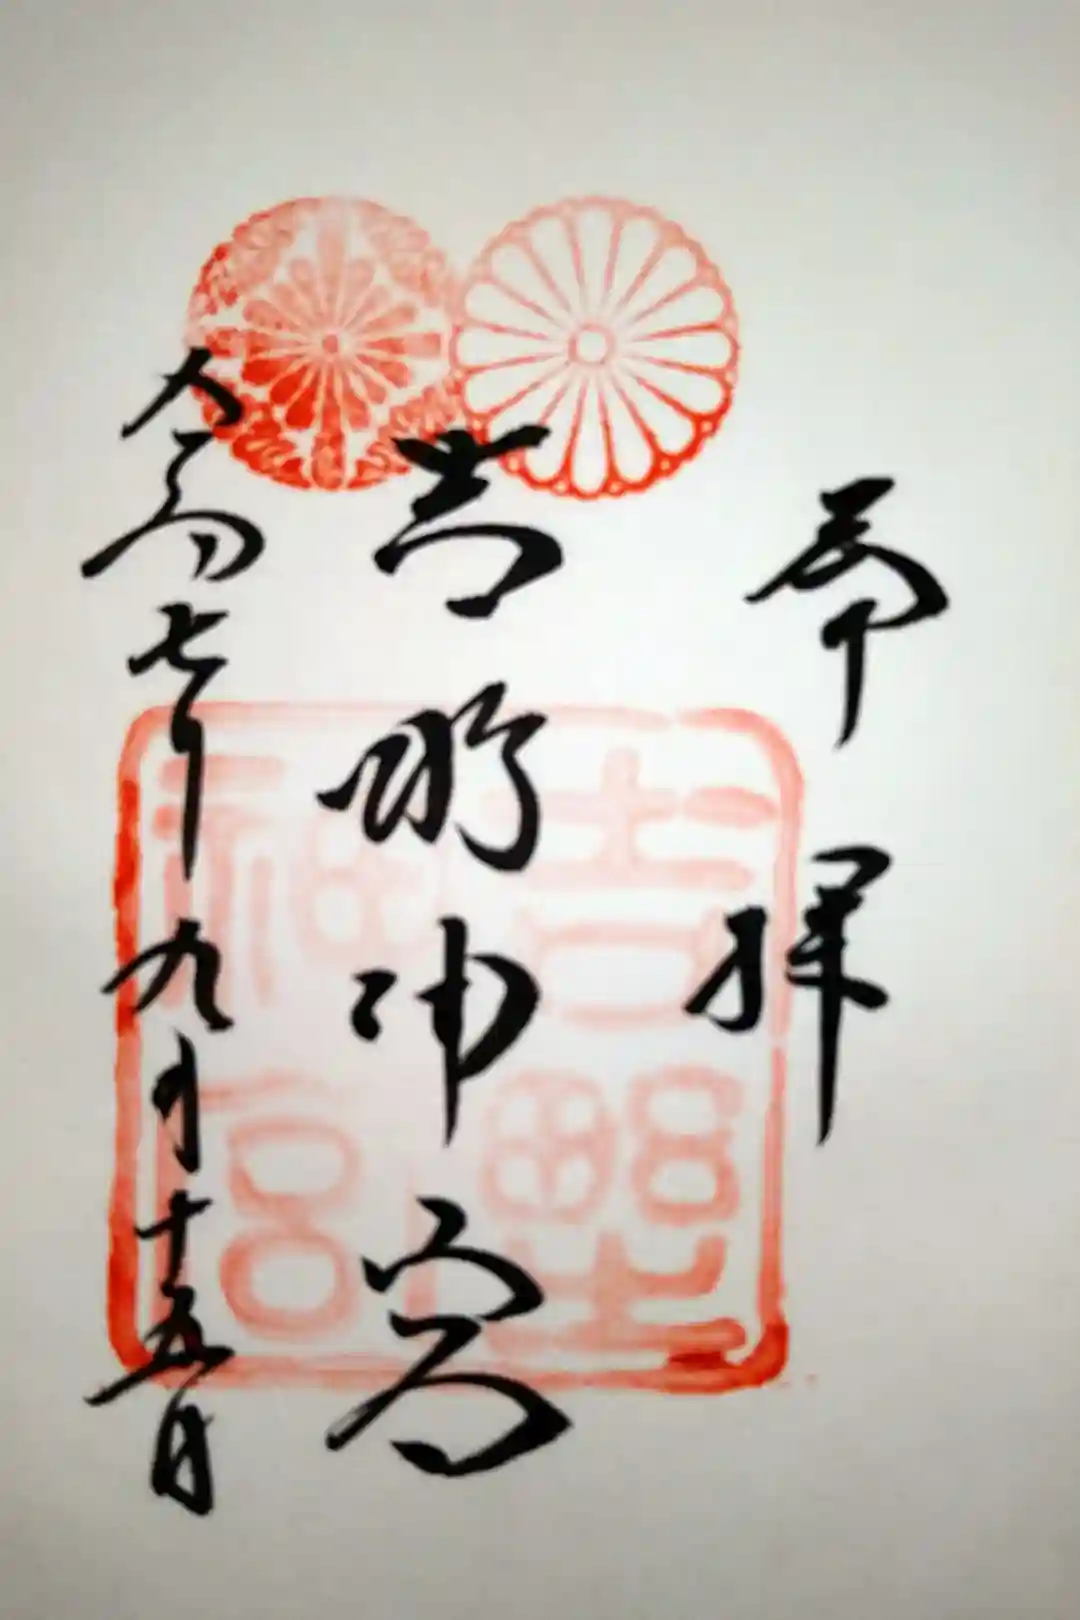 奉拝
吉野神宮
令和七年九月十五日
吉野
神宮